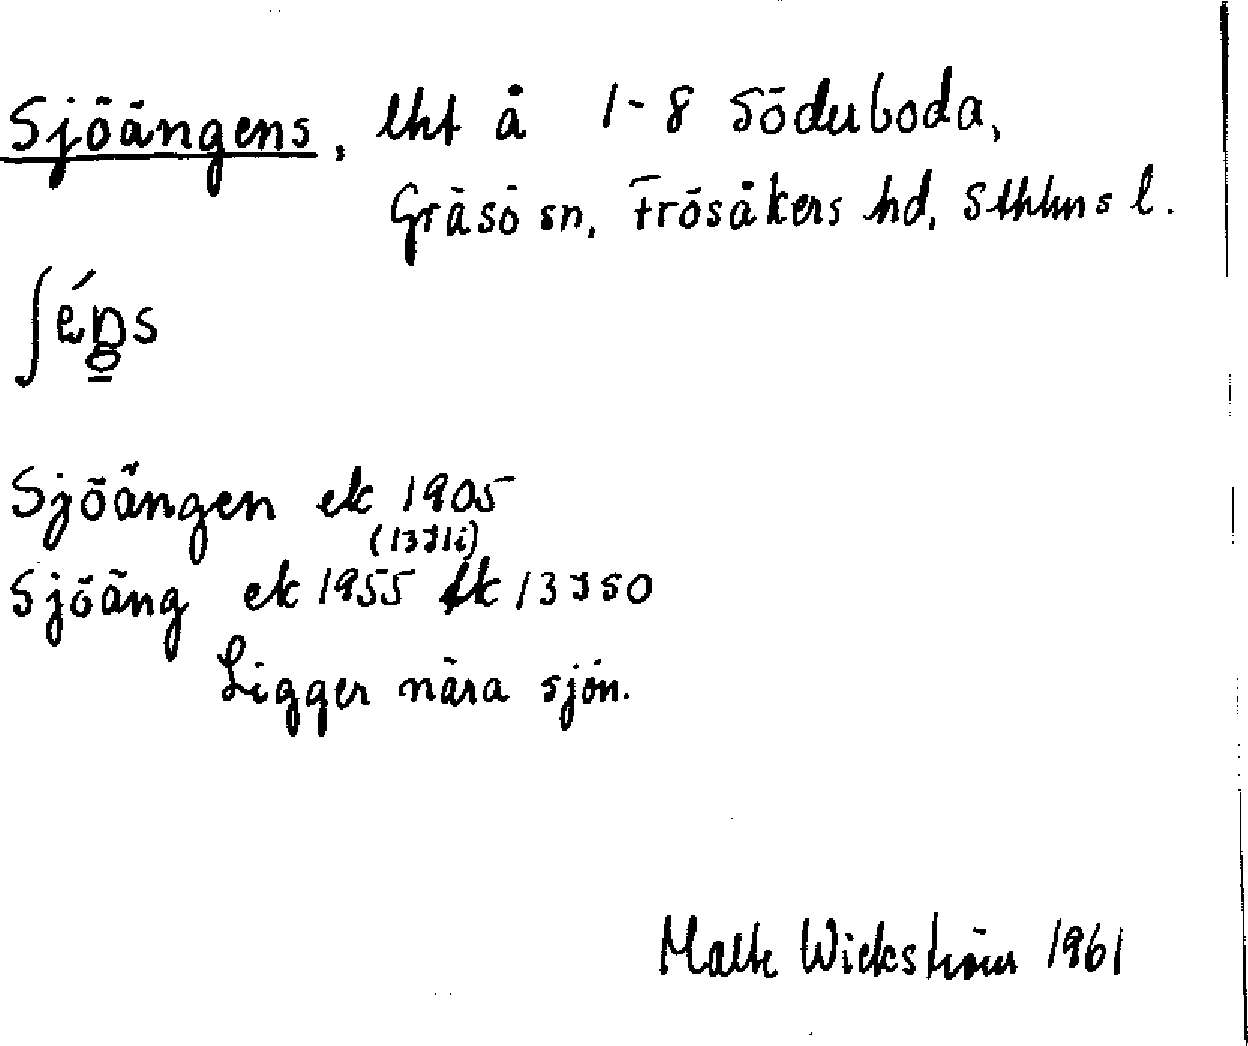 Sjöängens, lht å 1-8 Söderboda,
Gräsö sn, Frösåkers hd, Sthlms l.
Sjöängen ek 1905
(13J1i)
Sjöäng ek 1955 fk 13J50
Ligger nära sjön.
Malte Wickström 1961